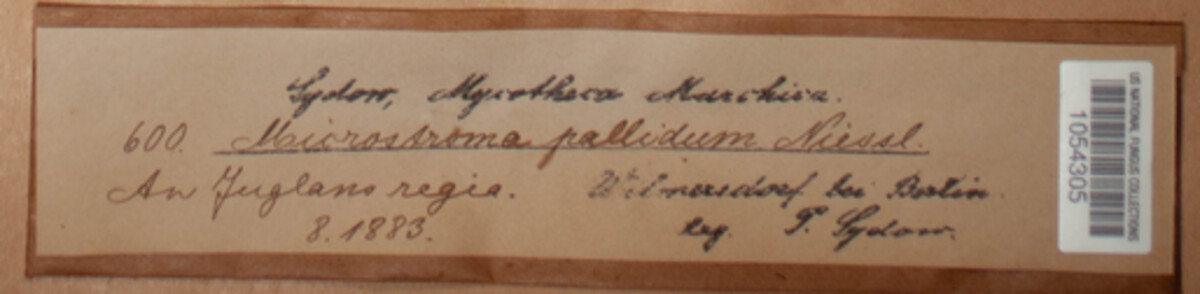 Sydow, Mycotheca Marchica.
600. Microstroma pallidum Niessl.
An Juglans regia. Wilmersdorf bei Berlin.
8.1883. leg. P. Sydow.
US NATIONAL FUNGUS COLLECTIONS
1054305